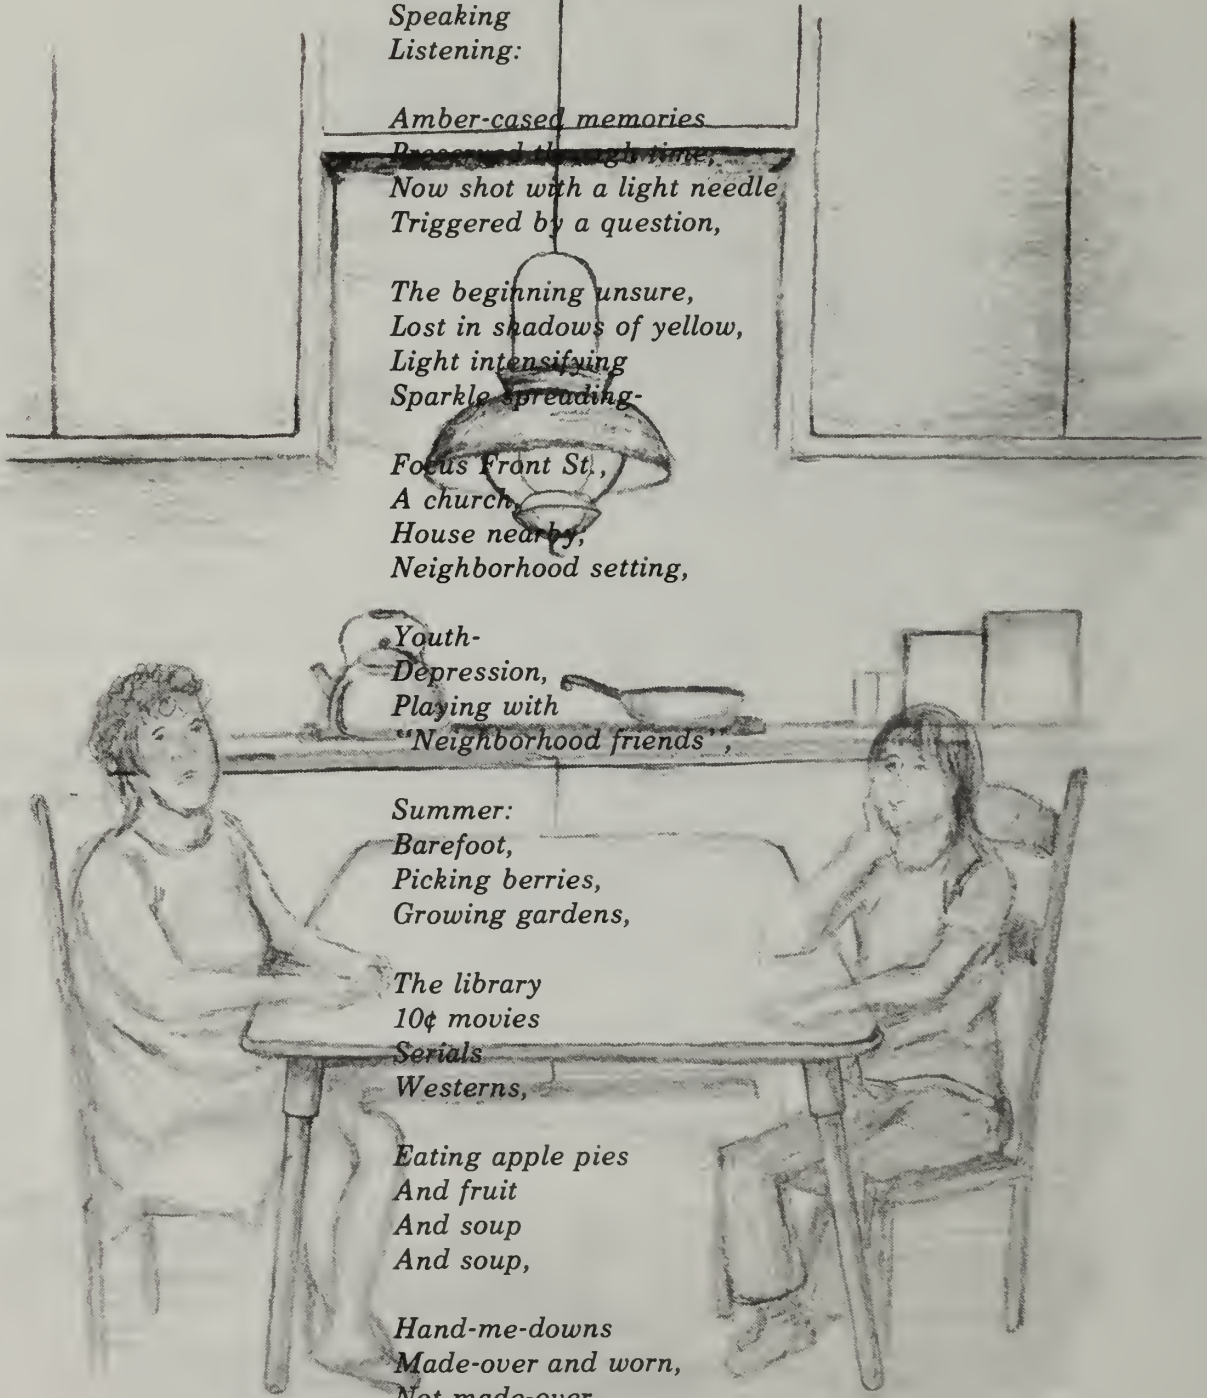 Speaking
Listening:
Amber-cased memories
Preserved through time,
Now shot with a light needle
Triggered by a question,
The beginning unsure,
Lost in shadows of yellow,
Light intensifying
Sparkle spreading-
Focus Front St.,
A church,
House nearby,
Neighborhood setting,
Youth-
Depression,
Playing with
"Neighborhood friends",
Summer:
Barefoot,
Picking berries,
Growing gardens,
The library
10¢ movies
Serials
Westerns,
Eating apple pies
And fruit
And soup
And soup,
Hand-me-downs
Made-over and worn,
Not made-over